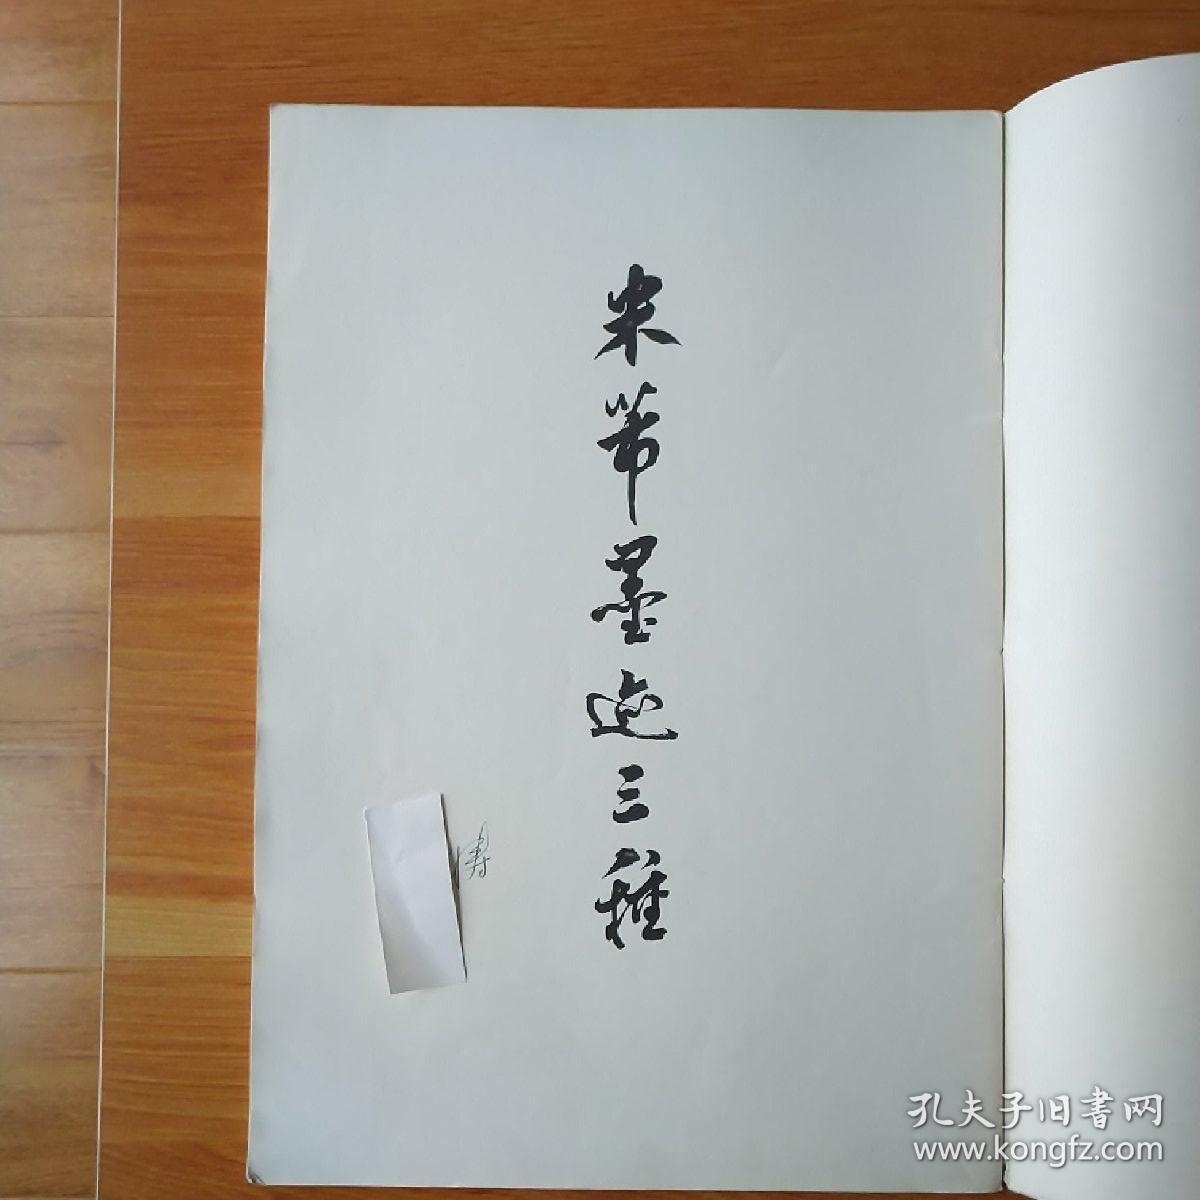 米芾墨迹三种
孔夫子旧书网
www.kongfz.com